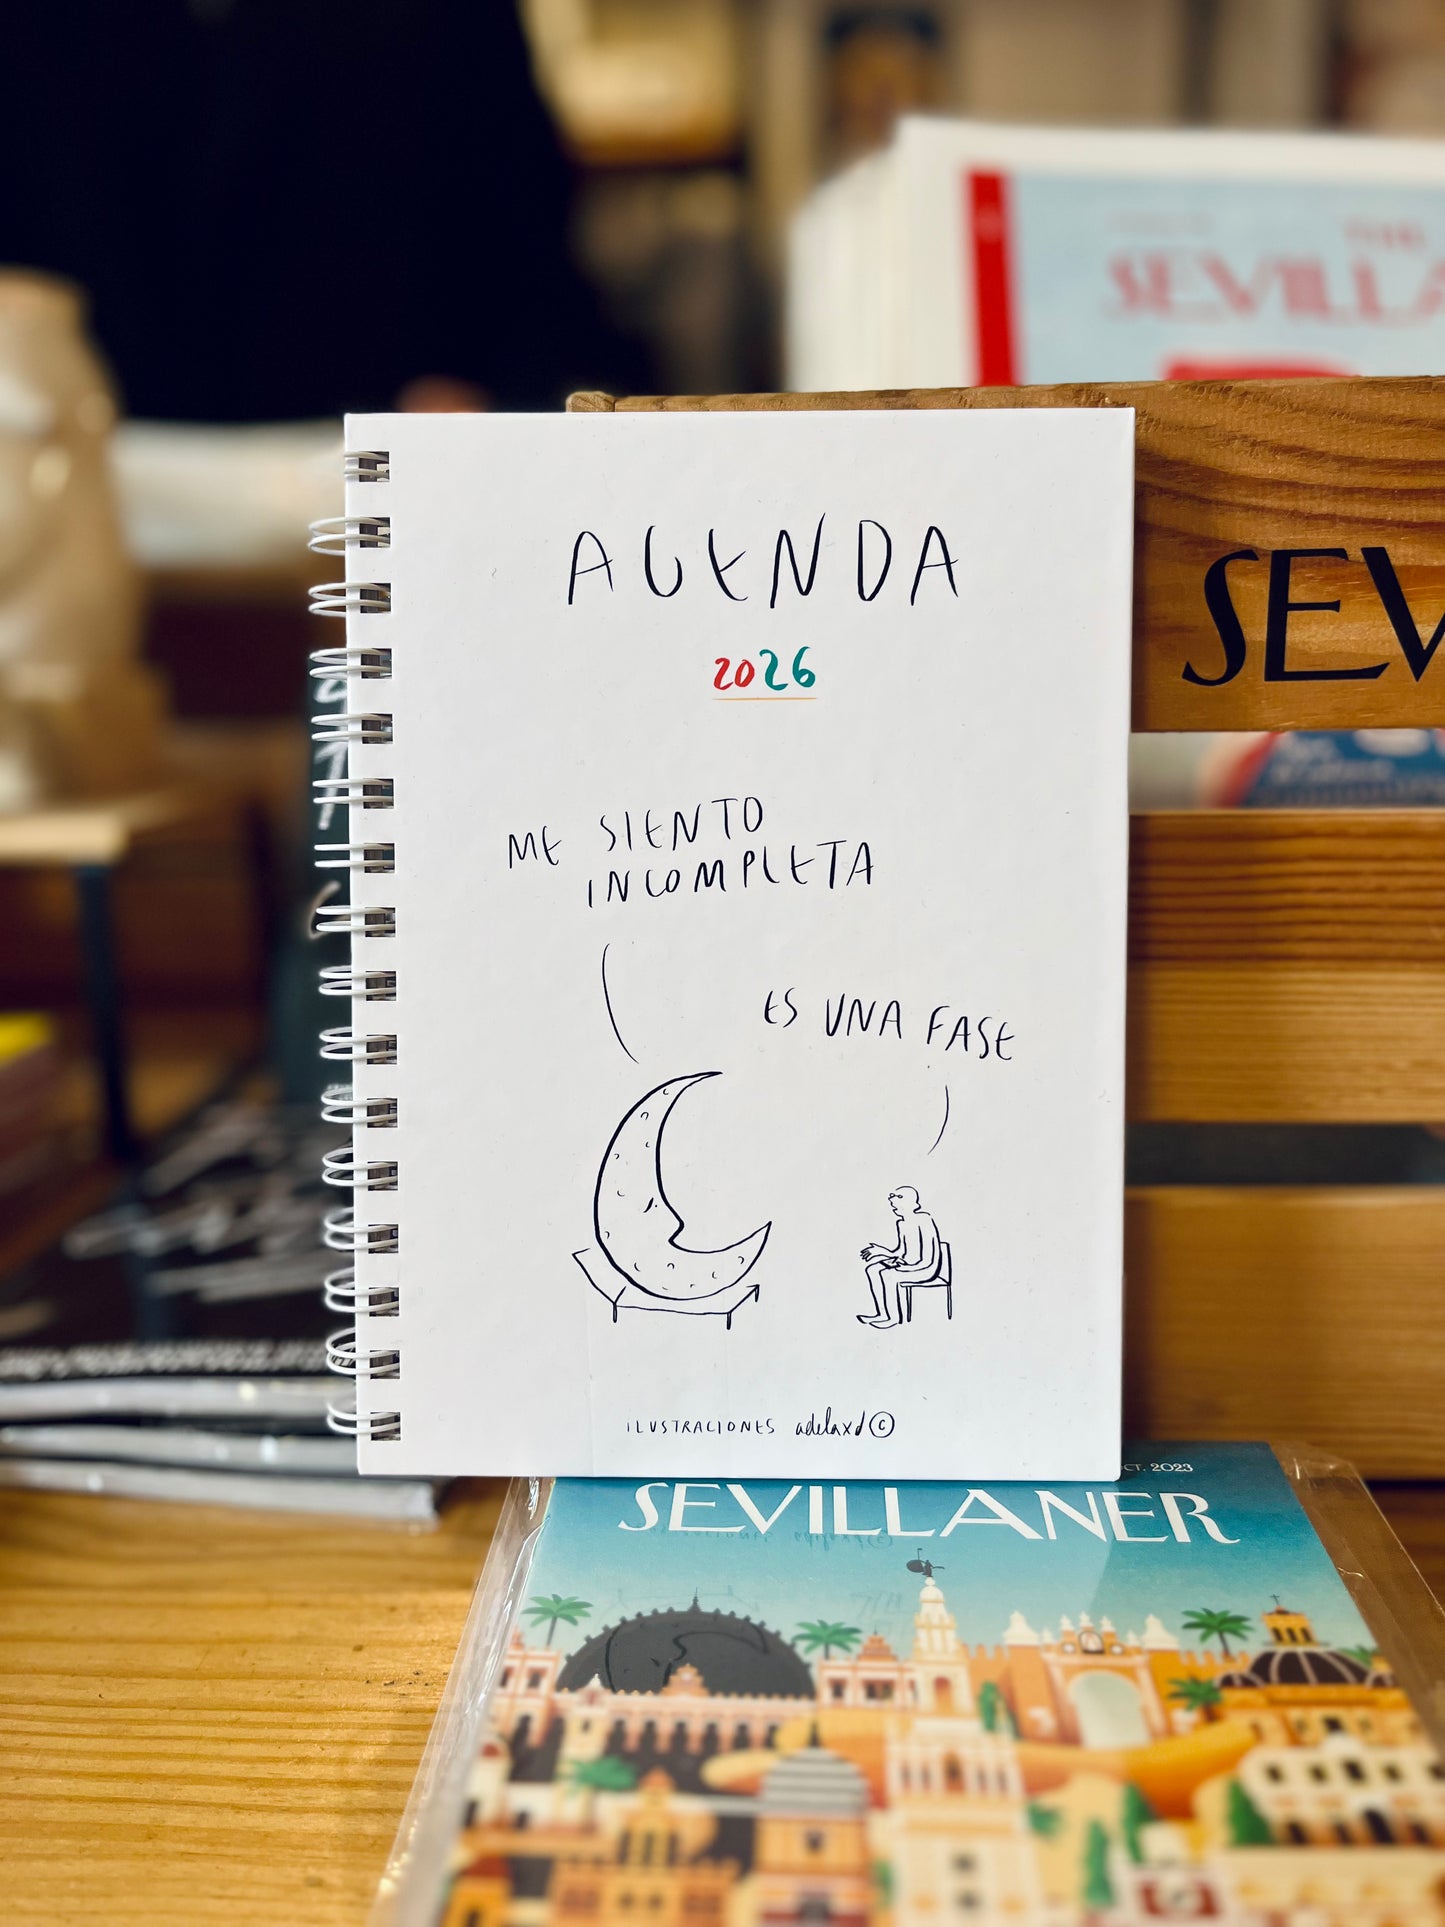 THE
SEVILLA
SEV
AGENDA
2026
ME SIENTO
INCOMPLETA
ES UNA FASE
ILUSTRACIONES adelaxd ©
OCT. 2023
SEVILLANER